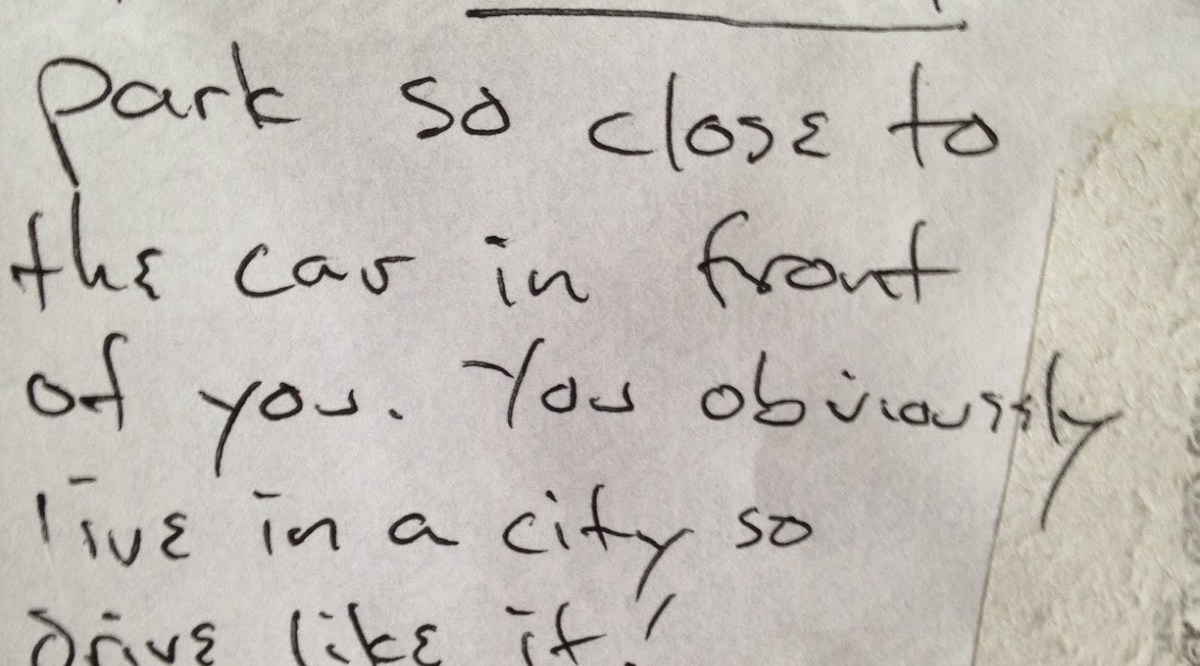 park so close to
the car in front
of you. You obviously
live in a city so
drive like it!